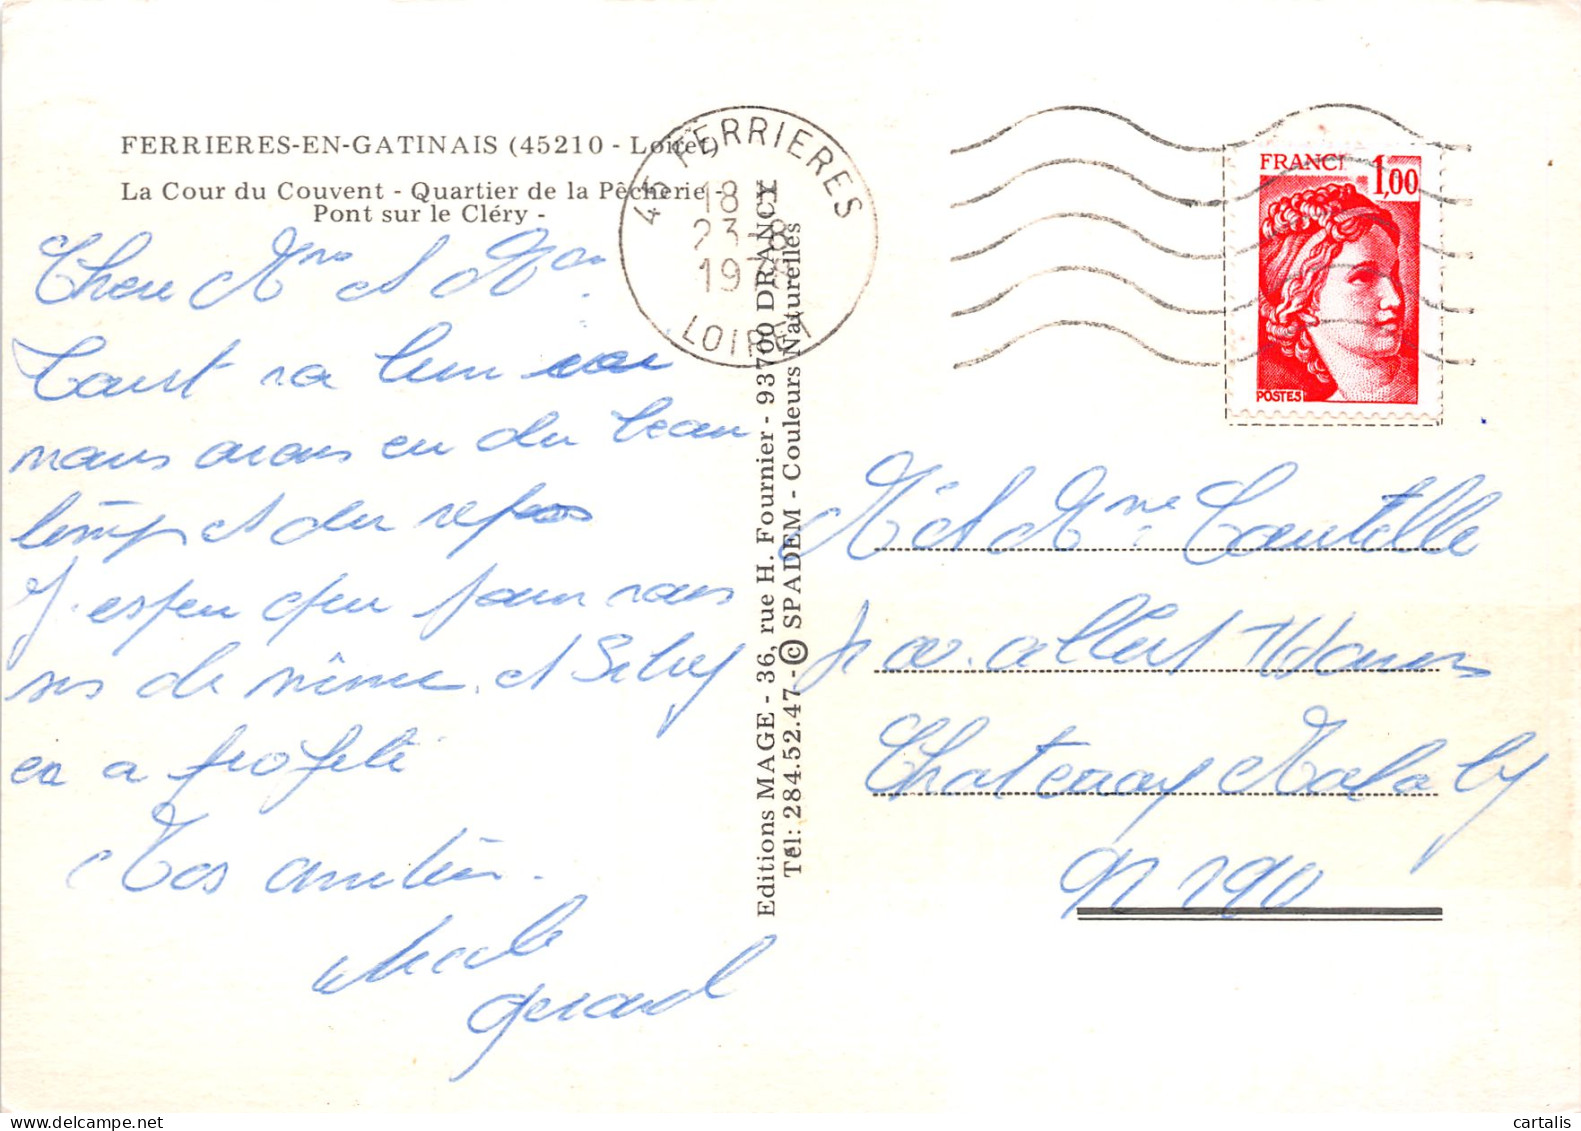 FERRIERES-EN-GATINAIS (45210 - Loiret)
La Cour du Couvent - Quartier de la Pêcherie -
Pont sur le Cléry -
Chere Mme et Mr
Tout va bien
nous avons eu du beau
temps et du repos
J'espere que pour vous
de même et
en a profité
Nos amitiés.
Gerard
Editions MAGE - 36, rue H. Fournier - 93700 DRANCY
Tél: 284.52.47 - © SPADEM - Couleurs Naturelles
45 FERRIERES
18 H
23 - 8
19
LOIRET
FRANCE 1,00
POSTES
Mr et Mme
av. Albert Thomas
Chatenay Malabry
92290
cartalis